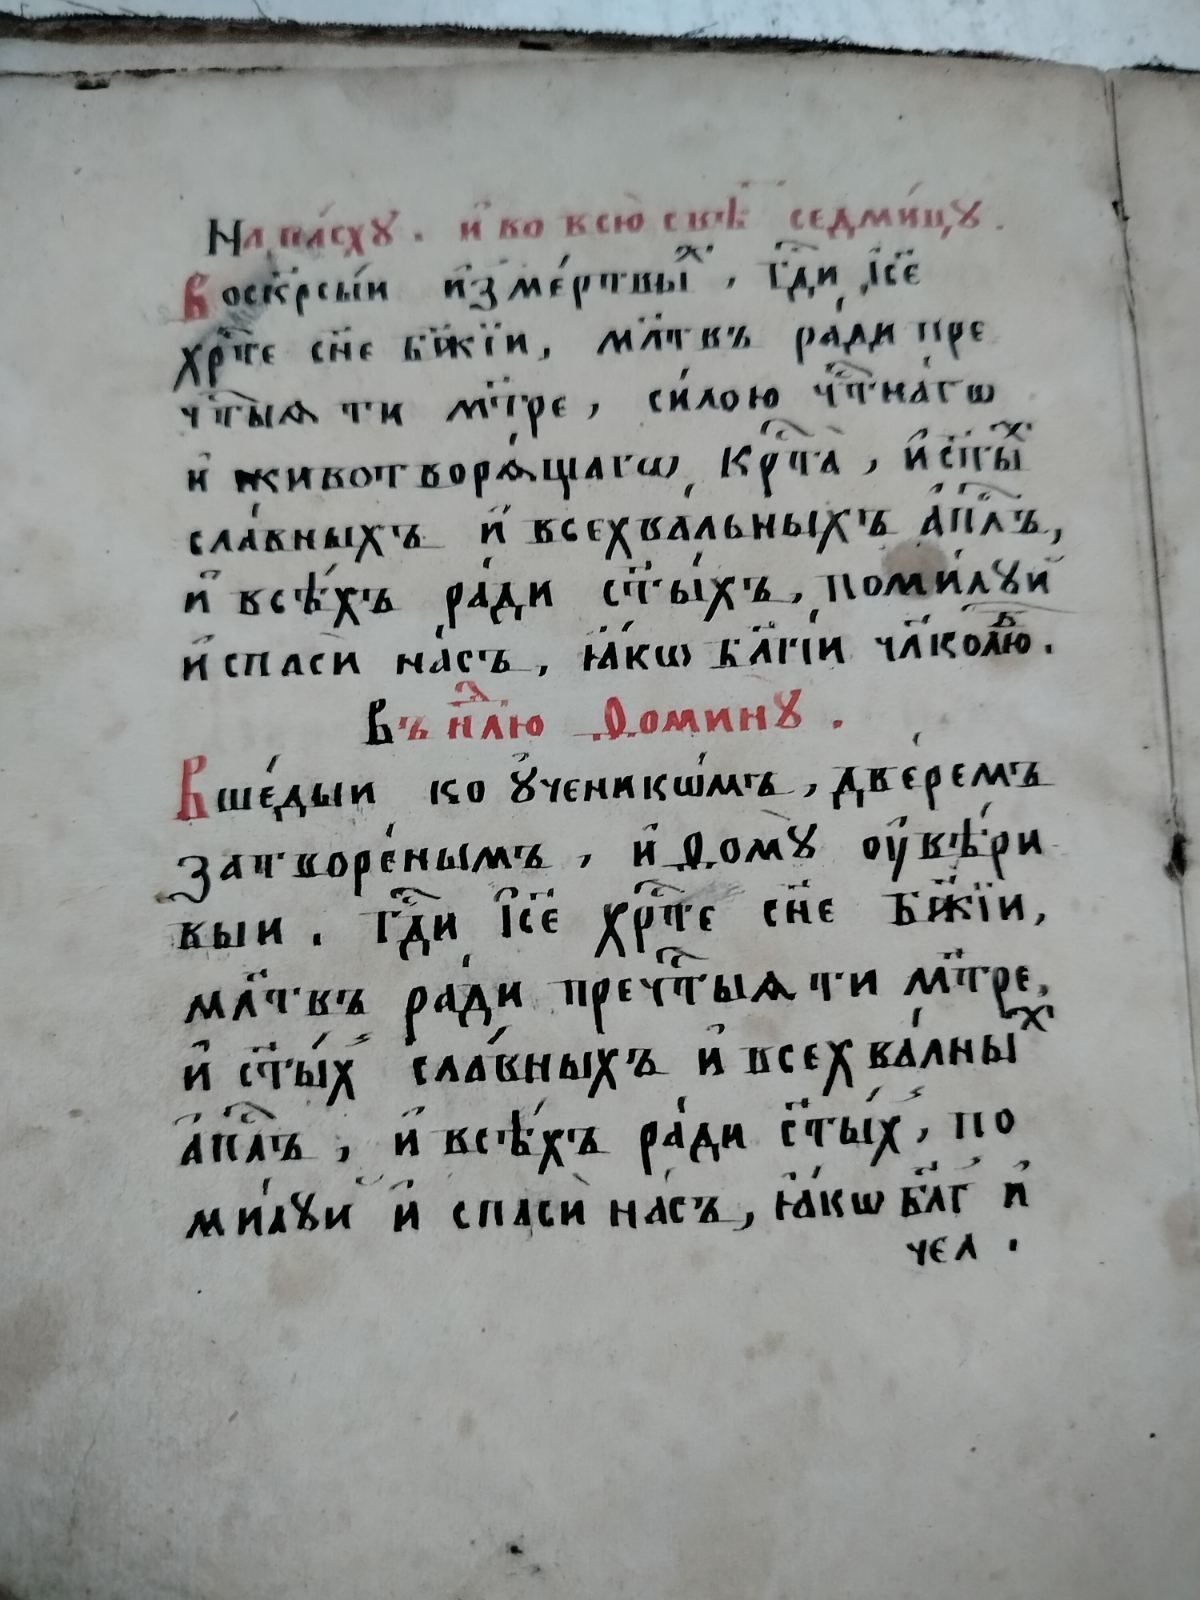 На па́схꙋ. и҆ во всю̀ свѣ седми́цꙋ.
Воскр҃сыи и҆зме́ртвыⷯ, гдⷭ҇и і҆с҃е
хрⷭ҇те сн҃е бж҃їи, мл҃твъ ра́ди пре
чтⷭ҇ыѧ ти мт҃ре, си́лою чтⷭ҇на́гѡ
и҆ животворѧ́щагѡ крⷭ҇та̀, и҆ ст҃ыⷯ
сла́вныхъ и҆ всехвальныхъ а҆пⷭ҇лъ,
и҆ всѣ́хъ ра́ди ст҃ы́хъ, поми́лꙋй
и҆ спасѝ на́съ, ꙗ҆́кѡ бл҃гі́и чл҃колюⷠ.
Въ нⷣлю Ѳоминꙋ.
Вше́дыи ко ᲂу҆ченикѡ́мъ, две́ремъ
затворе́нымъ, и҆ Ѳомꙋ̀ оу҆вѣ́ри
выи. гдⷭ҇и і҆с҃е хрⷭ҇те сн҃е бж҃їи,
мл҃твъ ра́ди пречтⷭ҇ыѧ ти мт҃ре,
и҆ ст҃ы́х сла́вныхъ и҆ всехва́лныⷯ
а҆пⷭ҇лъ, и҆ всѣ́хъ ра́ди ст҃ы́х, по
ми́лꙋй и҆ спасѝ на́съ, ꙗ҆́кѡ бл҃г и҆
чел.